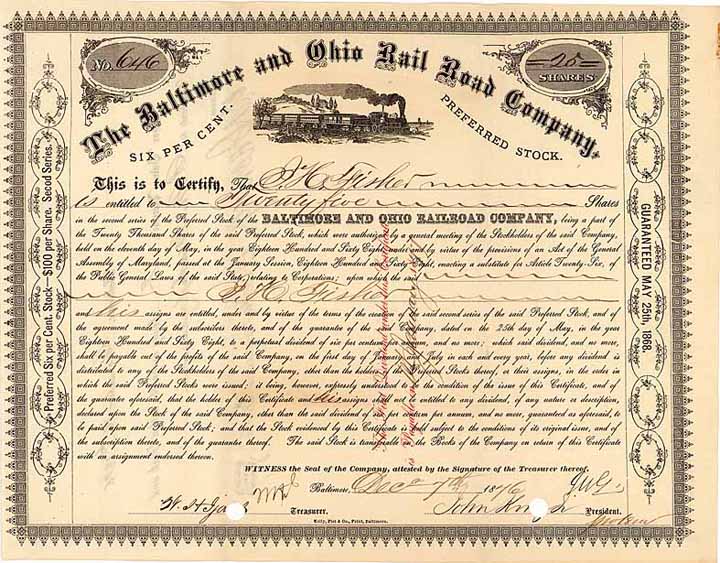 No. 646
25
SHARES
The Baltimore and Ohio Rail Road Company.
SIX PER CENT.
PREFERRED STOCK.
Preferred Six per Cent. Stock—$100 per Share. Second Series.
GUARANTEED MAY 25th, 1868.
This is to Certify, That J. H. Fisher
is entitled to Twenty five Shares
in the second series of the Preferred Stock of the BALTIMORE AND OHIO RAILROAD COMPANY, being a part of
the Twenty Thousand Shares of the said Preferred Stock, which were authorized by a general meeting of the Stockholders of the said Company,
held on the eleventh day of May, in the year Eighteen Hundred and Sixty Eight, under and by virtue of the provisions of an Act of the General
Assembly of Maryland, passed at the January Session, Eighteen Hundred and Sixty Eight, enacting a substitute for Article Twenty-Six, of
the Public General Laws of the said State, relating to Corporations; upon which the said
J. H. Fisher
and his assigns are entitled, under and by virtue of the terms of the creation of the said second series of the said Preferred Stock, and of
the agreement made by the subscribers thereto, and of the guarantee of the Company, dated on the 25th day of May, in the year
Eighteen Hundred and Sixty Eight, to a perpetual dividend of six per centum per annum, and no more; which said dividend, and no more,
shall be payable out of the profits of the said Company, on the first day of July in each and every year, before any dividend is
distributed to any of the Stockholders of the said Company, other than the holders of Preferred Stocks thereof, or their assigns, in the order in
which the said Preferred Stocks were issued; it being, however, expressly understood to be the condition of the issue of this Certificate, and of
the guarantee aforesaid, that the holder of this Certificate and his assigns shall not be entitled to any dividend, of any nature or description,
declared upon the Stock of the said Company, other than the said dividend of six per centum per annum, and no more, guaranteed as aforesaid, to
be paid upon said Preferred Stock; and that the Stock evidenced by this Certificate is held subject to the conditions of its original issue, and of
the subscription thereto, and of the guarantee thereof. The said Stock is transferable on the Books of the Company on return of this Certificate
with an assignment endorsed thereon.
WITNESS the Seal of the Company, attested by the Signature of the Treasurer thereof.
Baltimore, Dec 7th 1876
W. H. Treasurer.
John President.
Kelly, Piet & Co., Print, Baltimore.